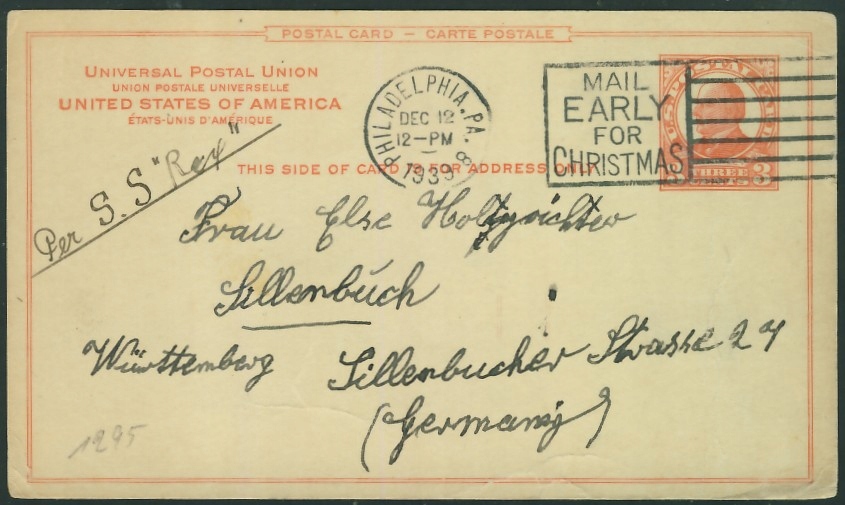 POSTAL CARD – CARTE POSTALE
UNIVERSAL POSTAL UNION
UNION POSTALE UNIVERSELLE
UNITED STATES OF AMERICA
ÉTATS-UNIS D'AMÉRIQUE
PHILADELPHIA, PA. 8
DEC 12
12-PM
1939
MAIL
EARLY
FOR
CHRISTMAS
U.S. POSTAL CARD
THREE CENTS 3
THIS SIDE OF CARD IS FOR ADDRESS ONLY
Per S.S "Rex"
Frau Else
Sillenbuch
Württemberg
Sillenbucher Strasse 27
(Germany)
1295